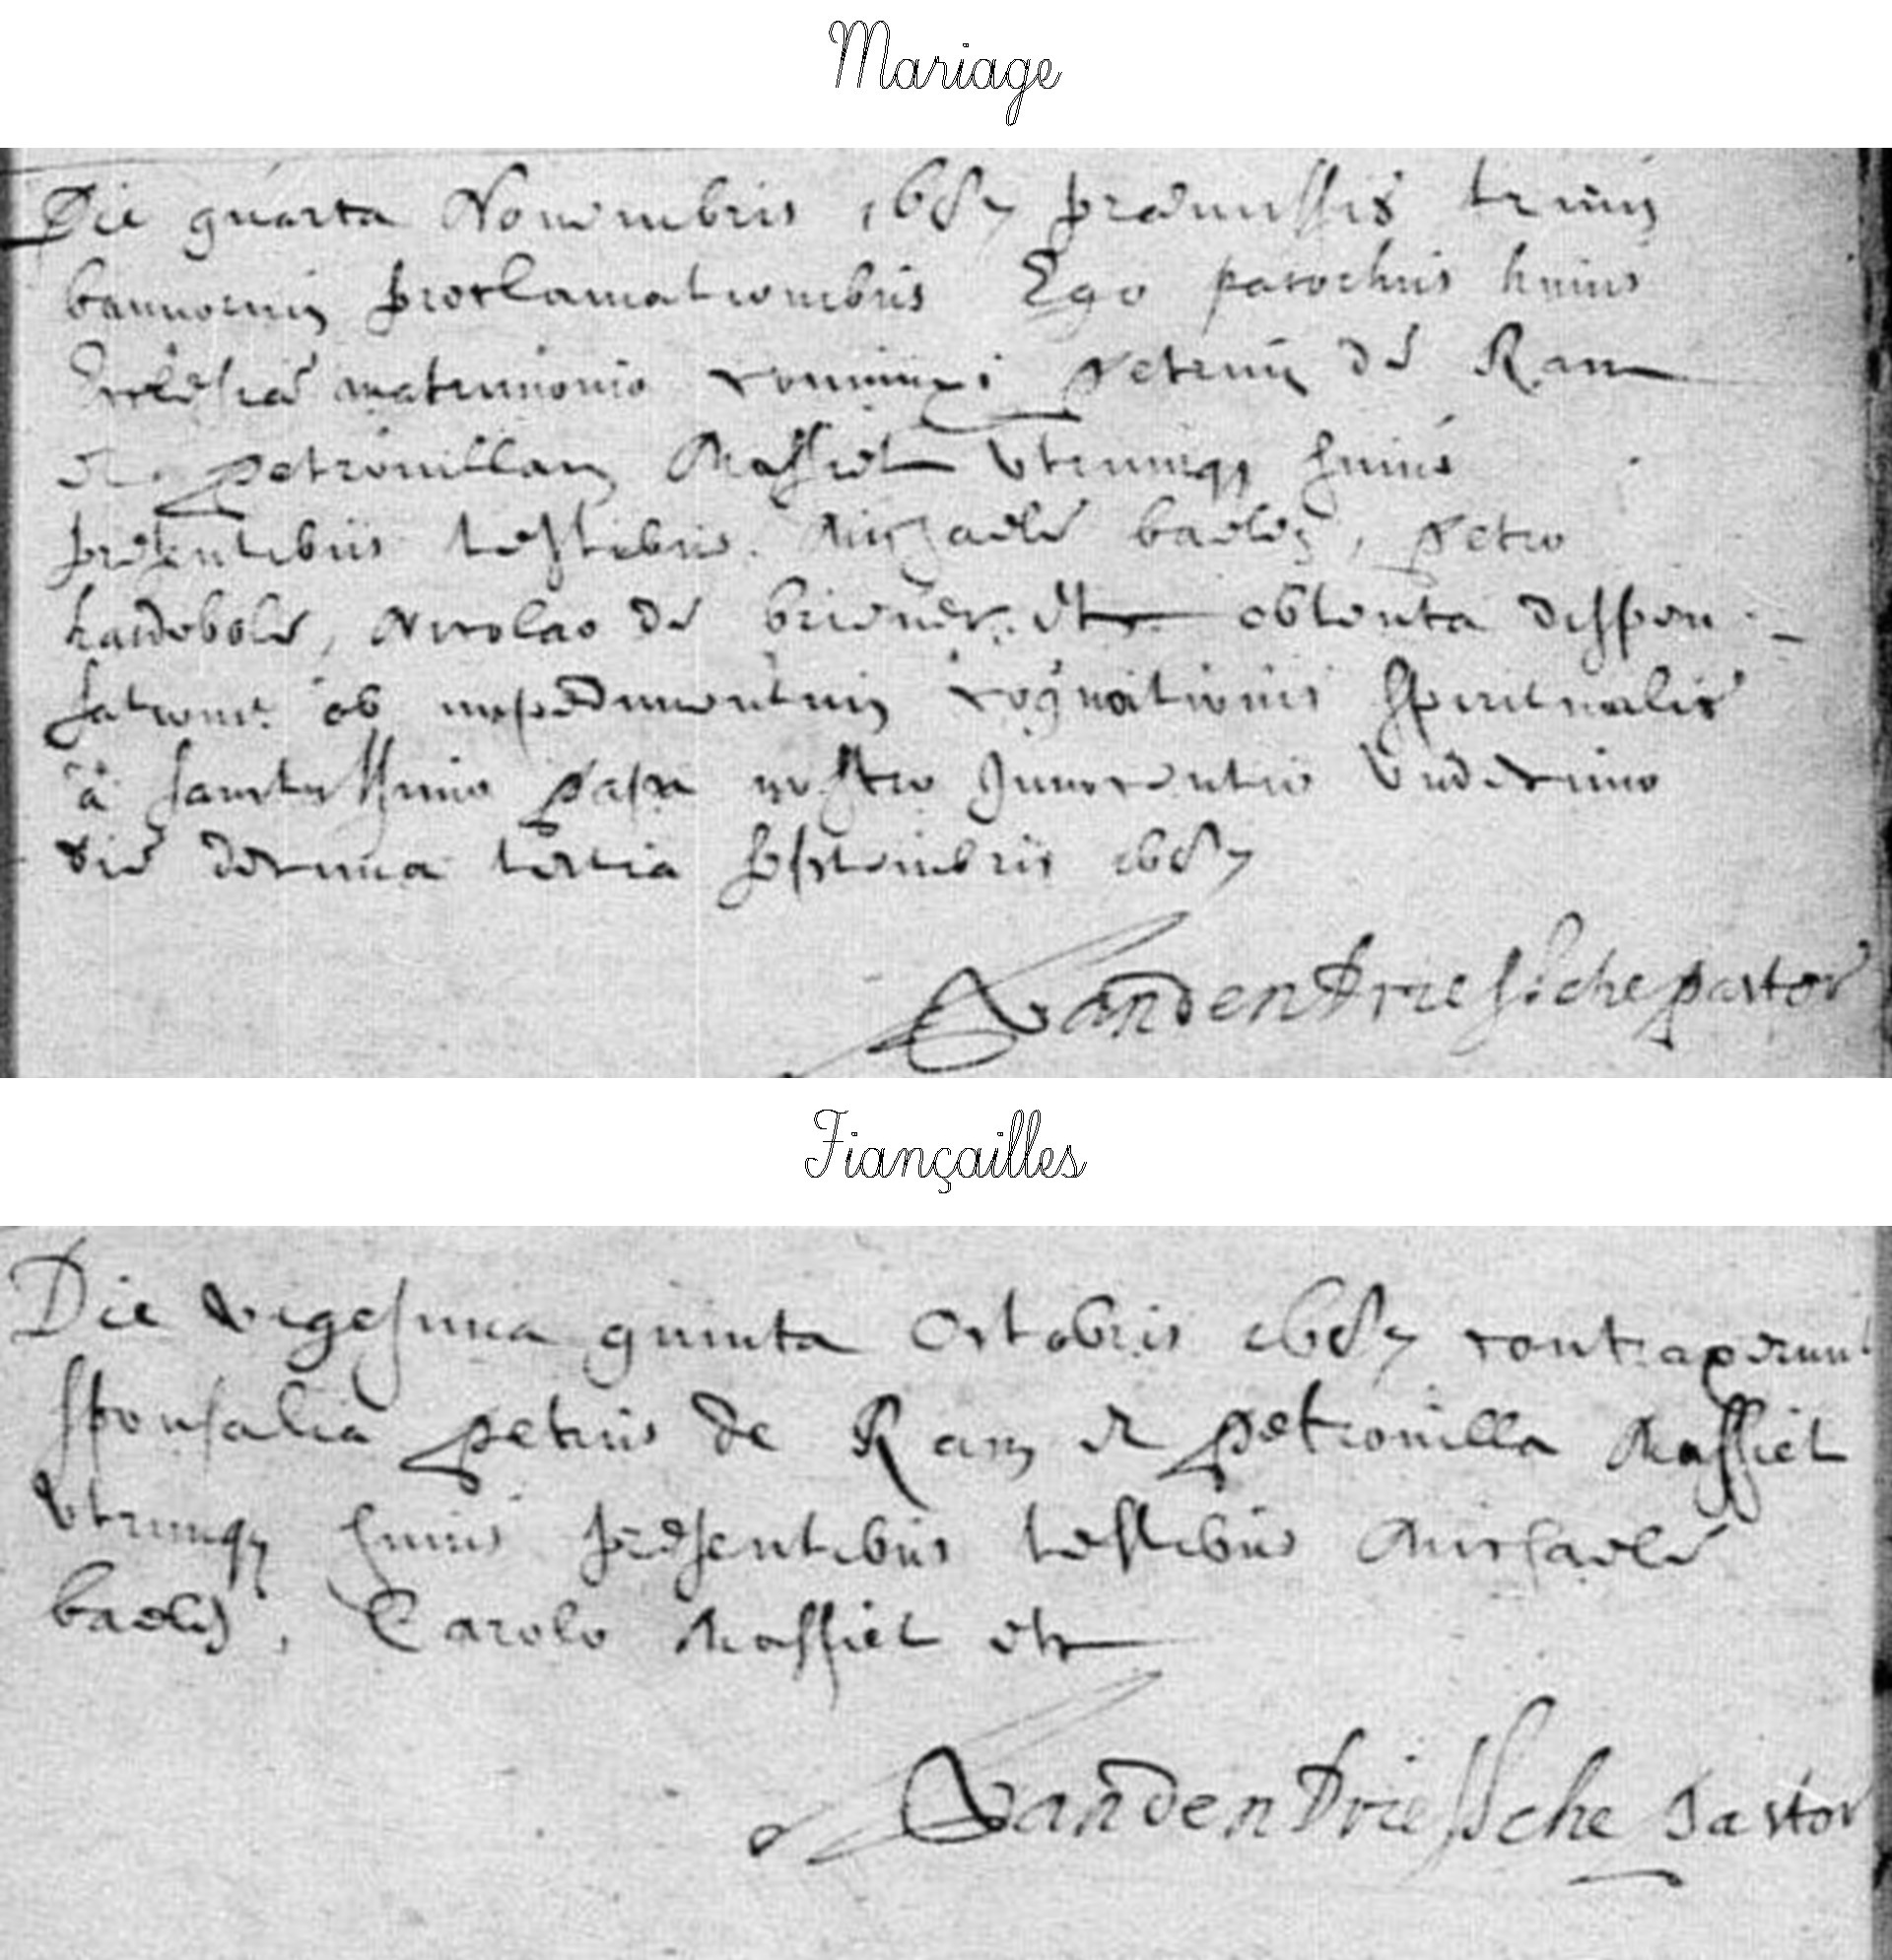 Mariage
Die quarta Novembris 1687 præmissis trinis
bannorum proclamationibus Ego parochus huius
Ecclesiæ matrimonio coniunxi petrum de Ram
et petronillam Massiet utrumque huius
præsentibus testibus. Michaele baelde, petro
Nicolao de et obtenta dispen-
satione ob impedimentum cognationis spiritualis
à sanctissimo papa nostro Innocentio Undecimo
die decima tertia septembris 1687
Vanden Driessche pastor
Fiançailles
Die vigesima quinta Octobris 1687 contraxerunt
sponsalia petrus de Ram et petronilla Massiet
utrumque huius præsentibus testibus Michaele
Carolo Massiet etc
Vanden Driessche Pastor